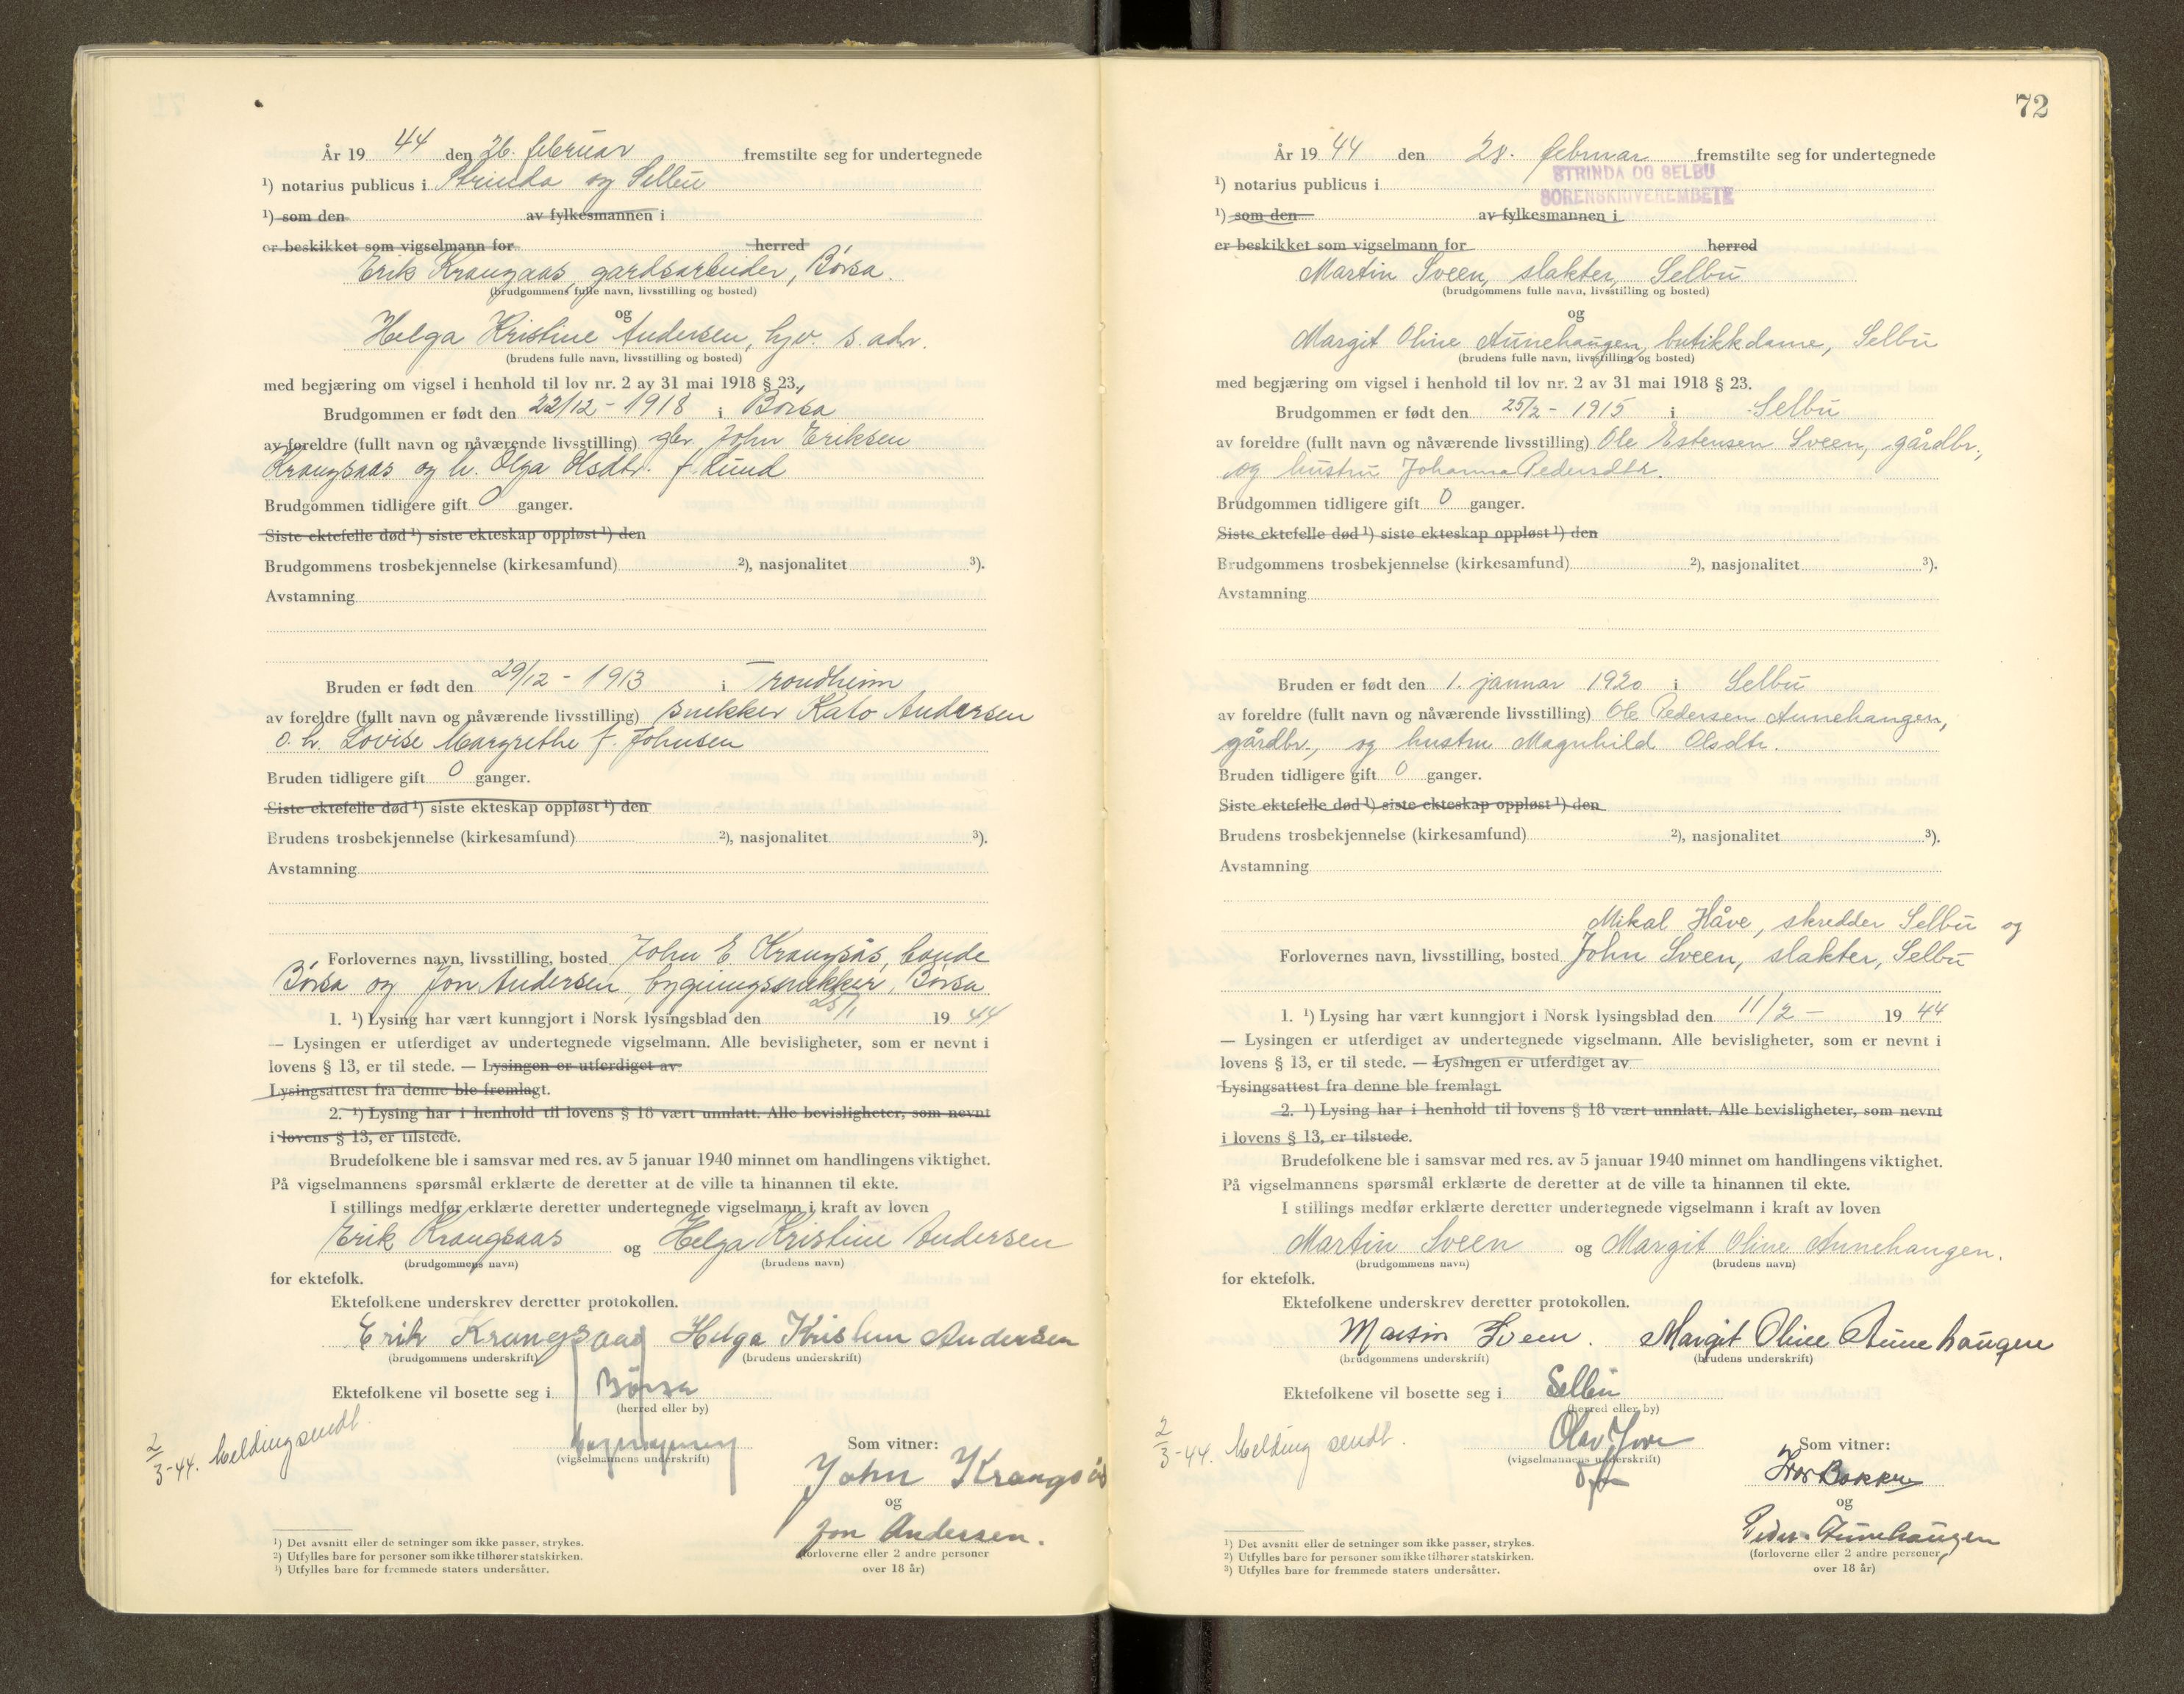 År 19 44 den 26. februar fremstilte seg for undertegnede
¹) notarius publicus i Strinda og Selbu
¹) som den av fylkesmannen i
er beskikket som vigselmann for herred
Erik Krangsaas, gardsarbeider, Børsa.
(brudgommens fulle navn, livsstilling og bosted)
og
Helga Kristine Andersen, hjv. s. adr.
(brudens fulle navn, livsstilling og bosted)
med begjæring om vigsel i henhold til lov nr. 2 av 31 mai 1918 § 23.
Brudgommen er født den 22/12 - 1918 i Børsa
av foreldre (fullt navn og nåværende livsstilling) gbr. John Eriksen
Krangsaas og h. Olga Olsdtr. f. Lund
Brudgommen tidligere gift 0 ganger.
Siste ektefelle død ¹) siste ekteskap oppløst ¹) den
Brudgommens trosbekjennelse (kirkesamfund) ²), nasjonalitet ³).
Avstamning
Bruden er født den 29/12 - 1913 i Trondheim
av foreldre (fullt navn og nåværende livsstilling) snekker Kato Andersen
o. h. Lovise Margrethe f. Johnsen
Bruden tidligere gift 0 ganger.
Siste ektefelle død ¹) siste ekteskap oppløst ¹) den
Brudens trosbekjennelse (kirkesamfund) ²), nasjonalitet ³).
Avstamning
Forlovernes navn, livsstilling, bosted John E Krangsås, bonde
Børsa og Jon Andersen, bygningsnekker, Børsa
1. ¹) Lysing har vært kunngjort i Norsk lysingsblad den 25/1 19 44
— Lysingen er utferdiget av undertegnede vigselmann. Alle bevisligheter, som er nevnt i
lovens § 13, er til stede. — Lysingen er utferdiget av
Lysingsattest fra denne ble fremlagt.
2. ¹) Lysing har i henhold til lovens § 18 vært unnlatt. Alle bevisligheter, som nevnt
i lovens § 13, er tilstede.
Brudefolkene ble i samsvar med res. av 5 januar 1940 minnet om handlingens viktighet.
På vigselmannens spørsmål erklærte de deretter at de ville ta hinannen til ekte.
I stillings medfør erklærte deretter undertegnede vigselmann i kraft av loven
Erik Krangsaas og Helga Kristine Andersen
(brudgommens navn) (brudens navn)
for ektefolk.
Ektefolkene underskrev deretter protokollen.
Erik Krangsaas Helga Kristine Andersen
(brudgommens underskrift) (brudens underskrift)
Ektefolkene vil bosette seg i Børsa
(herred eller by)
2/3-44. Melding sendt.
(vigselmannens underskrift)
Som vitner:
John Krangsås
og
Jon Andersen.
(forloverne eller 2 andre personer
over 18 år)
¹) Det avsnitt eller de setninger som ikke passer, strykes.
²) Utfylles bare for personer som ikke tilhører statskirken.
³) Utfylles bare for fremmede staters undersåtter.
72
År 19 44 den 28. februar fremstilte seg for undertegnede
¹) notarius publicus i STRINDA OG SELBU
SORENSKRIVEREMBETE
¹) som den av fylkesmannen i
er beskikket som vigselmann for herred
Martin Sveen, slakter, Selbu
(brudgommens fulle navn, livsstilling og bosted)
og
Margit Oline Aunehaugen, butikkdame, Selbu
(brudens fulle navn, livsstilling og bosted)
med begjæring om vigsel i henhold til lov nr. 2 av 31 mai 1918 § 23.
Brudgommen er født den 25/2 - 1915 i Selbu
av foreldre (fullt navn og nåværende livsstilling) Ole Estensen Sveen, gårdbr.,
og hustru Johanna Pedersdtr.
Brudgommen tidligere gift 0 ganger.
Siste ektefelle død ¹) siste ekteskap oppløst ¹) den
Brudgommens trosbekjennelse (kirkesamfund) ²), nasjonalitet ³).
Avstamning
Bruden er født den 1. januar 1920 i Selbu
av foreldre (fullt navn og nåværende livsstilling) Ole Pedersen Aunehaugen,
gårdbr., og hustru Magnhild Olsdtr.
Bruden tidligere gift 0 ganger.
Siste ektefelle død ¹) siste ekteskap oppløst ¹) den
Brudens trosbekjennelse (kirkesamfund) ²), nasjonalitet ³).
Avstamning
Mikal Håve, skredder Selbu og
Forlovernes navn, livsstilling, bosted John Sveen, slakter, Selbu
1. ¹) Lysing har vært kunngjort i Norsk lysingsblad den 11/2 - 19 44
— Lysingen er utferdiget av undertegnede vigselmann. Alle bevisligheter, som er nevnt i
lovens § 13, er til stede. — Lysingen er utferdiget av
Lysingsattest fra denne ble fremlagt.
2. ¹) Lysing har i henhold til lovens § 18 vært unnlatt. Alle bevisligheter, som nevnt
i lovens § 13, er tilstede.
Brudefolkene ble i samsvar med res. av 5 januar 1940 minnet om handlingens viktighet.
På vigselmannens spørsmål erklærte de deretter at de ville ta hinannen til ekte.
I stillings medfør erklærte deretter undertegnede vigselmann i kraft av loven
Martin Sveen og Margit Oline Aunehaugen.
(brudgommens navn) (brudens navn)
for ektefolk.
Ektefolkene underskrev deretter protokollen.
Martin Sveen. Margit Oline Aunehaugen
(brudgommens underskrift) (brudens underskrift)
Ektefolkene vil bosette seg i Selbu
(herred eller by)
2/3-44. Melding sendt.
Olav
(vigselmannens underskrift)
Som vitner:
Ivar Bakken
og
Peder Aunehaugen
(forloverne eller 2 andre personer
over 18 år)
¹) Det avsnitt eller de setninger som ikke passer, strykes.
²) Utfylles bare for personer som ikke tilhører statskirken.
³) Utfylles bare for fremmede staters undersåtter.